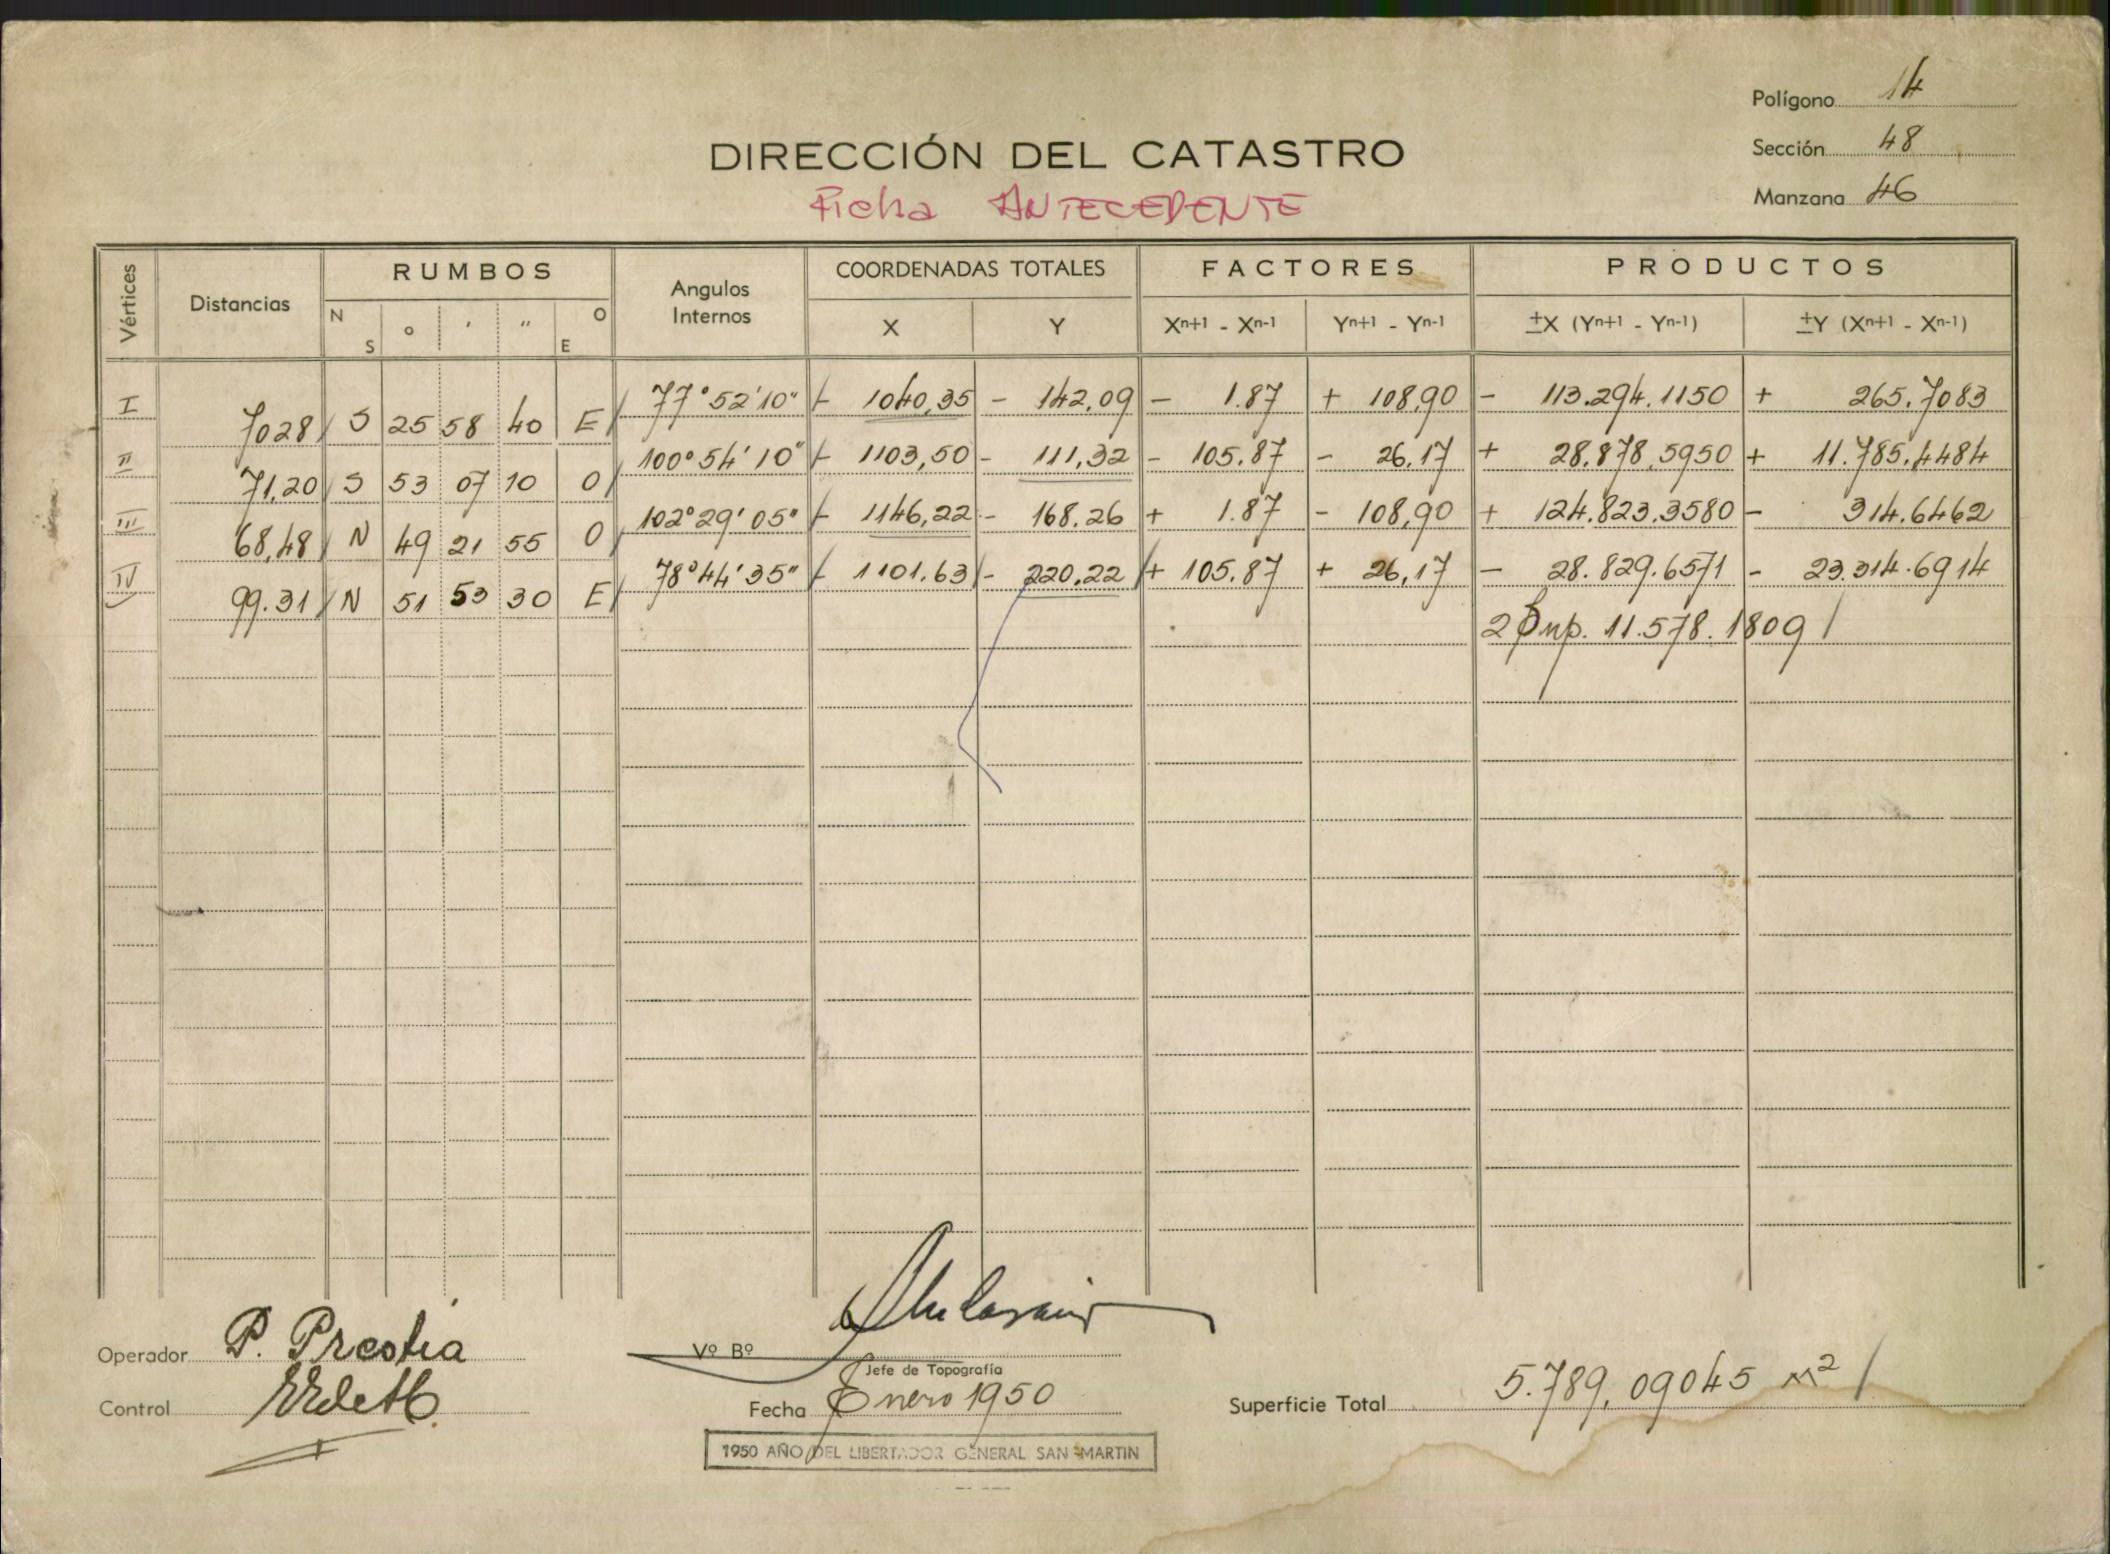 Polígono 14
Sección 48
Manzana 46
DIRECCIÓN DEL CATASTRO
Ficha ANTECEDENTE
Vértices Distancias RUMBOS Angulos Internos COORDENADAS TOTALES FACTORES PRODUCTOS
N S ° ' " O E X Y Xn+1 - Xn-1 Yn+1 - Yn-1 ±X (Yn+1 - Yn-1) ±Y (Xn+1 - Xn-1)
I 7028 S 25 58 40 E 77°52'10" - 1040,35 - 142,09 - 1.87 + 108,90 - 113.294.1150 + 265.7083
II 71,20 S 53 07 10 O 100°54'10" - 1103,50 - 111,32 - 105.87 - 26,17 + 28.878,5950 + 11.785.4484
III 68,48 N 49 21 55 O 102°29'05" - 1146,22 - 168.26 + 1.87 - 108,90 + 124.823.3580 - 314.6462
IV 99.31 N 51 53 30 E 78°44'35" - 1101.63 - 220,22 + 105.87 + 26,17 - 28.829.6571 - 23.314.6914
2 Sup. 11.578.1809
Operador P. Prestia
Control
Vº Bº
Jefe de Topografía
Fecha Enero 1950
Superficie Total 5.789,09045 m2
1950 AÑO DEL LIBERTADOR GENERAL SAN MARTIN